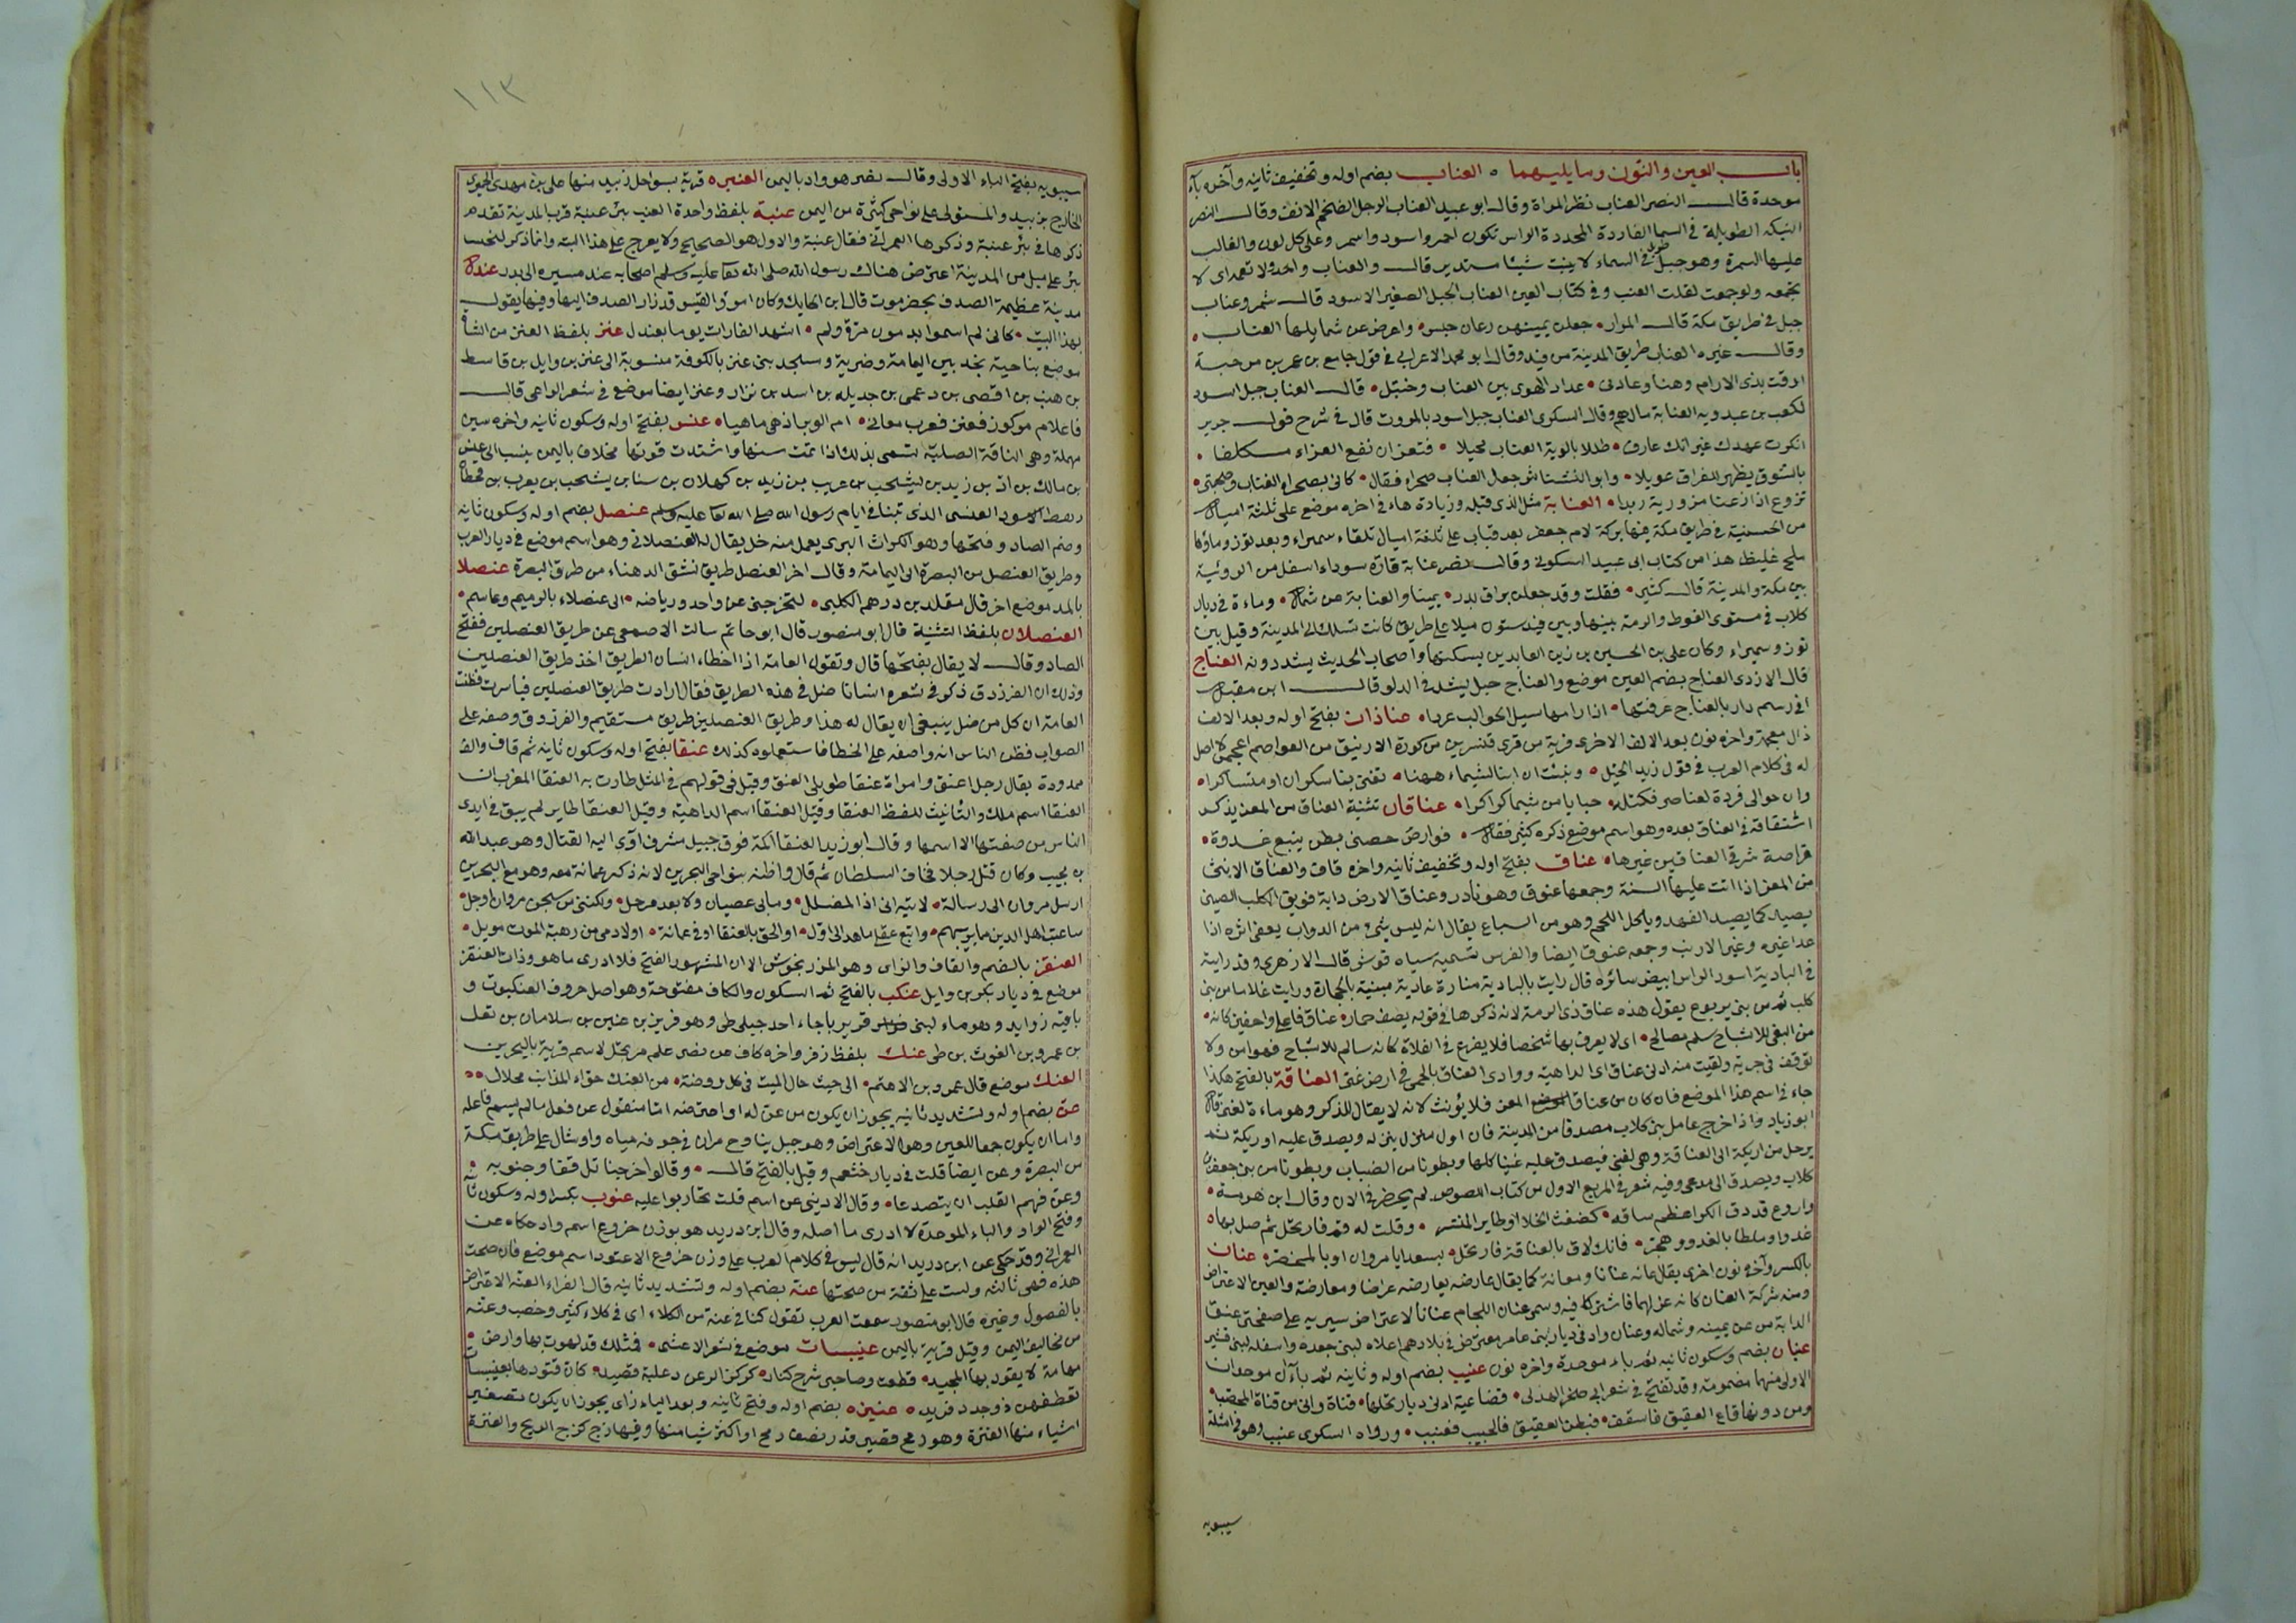 باب العين والنون وما يليهما ۰ العناب بضم اوله وتخفيف ثانيه وآخره باء
موحدة قال النضر العناب نظر المراة وقال ابو عبيد العناب الرجل الضخم الانف وقال النضر
النبكة الطويلة في السما الفاردة المحددة الراس تكون احمر واسود واسمر وعلى كل لون والغالب
عليها السمرة وهو جبل طويل في السماء لا ينبت شيئا مستدير قال والعناب واحد ولا تعمه اى لا
تجمعه ولو جمعت لقلت العنب وفي كتاب العين العناب الجبل الصغير الاسود قال شمر وعناب
جبل في طريق مكة قال المرار • جعلن يمينهن رعان حبس • واعرض عن شمايلها العناب •
وقال غيره العناب طريق المدينة من فيد وقال ابو محمد الاعرابي في قول جامع بن عمر بن مرخية
ارقت بذى الارام وهنا وعادنى • عداد الهوى بين العناب وخثيل • قال العناب جبل اسود
لكعب بن عبدويه العنابة مال لهم وقال السكرى العناب جبل اسود بالمروت قال في شرح قول جرير
انكرت عهدك غير انك عارف • طللا بالوية العناب محيلا • فتعز ان نفع العزاء مكلفا •
بالشوق يظهر للفراق عويلا • وابو النشناش جعل العناب صحراء فقال • كانى بصحراء العناب وصحبتى •
تزوع اذا زعنا مزورية ربدا • العنابة مثل الذى قبله وزيادة هاء في اخره موضع على ثلثة اميال
من الحسنية في طريق مكة فيها بركة لام جعفر بعد قباب على ثلثة اميال تلقاء سميراء وبعد توز وماؤها
ملح غليظ هذا من كتاب ابى عبيد السكونى وقال نصر عنابة قارة سوداء اسفل من الرويثة
بين مكة والمدينة قال كثير • فقلت وقد جعلن براق بدر • يمينا والعنابة عن شمال • وماءة في ديار
كلاب في مستوى الغوط والرمة بينها وبين فيد ستون ميلا على طريق كانت تسلك الى المدينة وقيل بين
توز وسميراء وكان على بن الحسين بن زين العابدين يسكنها واصحاب الحديث يشددونه العناج
قال الازدى العناج بضم العين موضع والعناج حبل يشد في الدلو قال ابن مقبل
افي رسم دار بالعناج عرفتها • اذا رامها سيل الحوالب عردا • عناذان بفتح اوله وبعد الالف
ذال معجمة واخره نون بعد الالف الاخرى قرية من قرى قنسرين من كورة الارتيق من العواصم اعجمى لا اصل
له في كلام العرب في قول زيد الخيل • ونبئت ان ابنا لشيماء ههنا • تغنى بنا سكران او متساكرا •
وان حوالى فردة لعناصر فكتلة • حيا يامن شيما كراكرا • عناقان تثنية العناق من المعز يذكر
اشتقاقه في العناق بعده وهو اسم موضع ذكره كثير فقال • قوارض حضنى بطن ينبع غدوة •
قواصد شرقى العناقين عيرها • عناق بفتح اوله وتخفيف ثانيه واخره قاف والعناق الانثى
من المعز اذا اتت عليها السنة وجمعها عنوق وهو نادر وعناق الارض دابة فويق الكلب الصينى
يصيد كما يصيد الفهد وياكل اللحم وهو من السباع يقال انه ليس شئ من الدواب يعفى اثره اذا
عدا غيره وغير الارنب وجمعه عنوق ايضا والفرس تسميه سياه قوش قال الازهرى وقد رايته
في البادية اسود الراس ابيض سائره قال رايت بالبادية منارة عادية مبنية بالحجارة ورايت غلاما من بنى
كلب ثم من بنى يربوع يقول هذه عناق ذى الرمة لانه ذكرها في قوله يصف حمارا • عناق فاعلى واحفين كانه •
من البغى للاشباح سلم مصالح • اى لا يعرف بها شخصا فلا يفزع في الفلاة كانه سالم للاشباح فهو امن ولا
توقف في جريه ولقيت منه ادنى عناق اى الداهية ووادى العناق بالحمى في ارض غنى العناقة بالفتح هكذا
جاء في اسم هذا الموضع فان كان من عناق المعز فلا يؤنث لانه لا يقال للذكر وهو ماءة لغنى قال
ابو زياد واذا خرج عامل بنى كلاب مصدقا من المدينة فان اول منزل ينزله ويصدق عليه اريكة ثم
يرحل من اريكة الى العناقة وهى لغنى فيصدق عليه غنيا كلها وبطونا من الضباب وبطونا من بنى جعفر بن
كلاب ويصدق الى مدعى وفيه شعر في المربع الاول من كتاب اللصوص لم يحضرنى الان وقال ابن هرمة •
واروع قد دق الكرا عظم ساقه • كضغث الخلا او طاير المنتسر • وقلت له قم فارتحل ثم صل بها •
غدوا وملطا بالغدو وهجر • فانك لاق بالعناقة فارتحل • بسعد ابا مروان او بالمخضر • عنان
بالكسر وآخره نون اخرى يقال عانه عنانا ومعانة كما يقال عارضه يعارضه عراضا ومعارضة والعين الاعتراض
ومنه شركة العنان كانه عن لهما فاشتركا فيه وسمى عنان اللجام عنانا لاعتراض سيريه على صفحتى عنق
الدابة من عن يمينه وشماله وعنان واد في ديار بنى عامر معترض في بلادهم اعلاه لبنى جعدة واسفله لبنى قشير
عنبان بضم وسكون ثانيه ثم باء موحدة واخره نون عنبب بضم اوله وثانيه ثم باآن موحدتان
الاولى منهما مضمومة وقد تفتح في شعر ابى صخر الهذلى • قضاعية ادنى ديار تحلها • قناة وانى من قناة المحصب •
ومن دونها قاع العقيق فاسقف • فبطن العقيق فالخبيب فعنبب • ورواه السكرى عنبب وهو في امثلة
سيبويه
١١٣
سيبويه بفتح الباء الاولى وقال نصر هو واد باليمن العنبرة قرية بسواحل زبيد منها على بن مهدى الحميرى
الخارج بزبيد والمستولى على نواحى كثيرة من اليمن عنبة بلفظ واحدة العنب بئر عنبة قرب المدينة تقدم
ذكرها في بئر عنبة وذكرها العمرانى فقال عنبة والاول هو الصحيح ولا يعرج على هذا البتة وانما ذكر لتجتنب
بئر على ميل من المدينة اعترض هناك رسول الله صلى الله تعالى عليه وسلم اصحابه عند مسيره الى بدر عندل
مدينة عظيمة الصدف بحضرموت قال ابن الحايك وكان امرؤ القيس قد زار الصدف اليها وفيها يقول
بهذا البيت • كانى لم اسمر بدمون مرة ولم • اشهد الغارات يوما بعندل عنز بلفظ العنز من الشاة
موضع بناحية نجد بين اليمامة وضرية ومسجد بنى عنز بالكوفة منسوبة الى عنز بن وايل بن قاسط
بن هنب بن افصى بن دعمى بن جديلة بن اسد بن نزار وعنز ايضا موضع في شعر الراعى قال
فاعلام مركوز فعنز فعرب معانى • ام الوبر اذ هى ماهيا • عنس بفتح اوله وسكون ثانيه واخره سين
مهملة وهى الناقة الصلبة تسمى بذلك اذا تمت سنها واشتدت قوتها مخلاف باليمن ينسب الى عنس
بن مالك بن ادد بن زيد بن يشجب بن عريب بن زيد بن كهلان بن سبا بن يشجب بن يعرب بن قحطان
رهط الاسود العنسى الذى تنبا في ايام رسول الله صلى الله تعالى عليه وسلم عنصل بضم اوله وسكون ثانيه
وضم الصاد وفتحها وهو الكراث البرى يعمل منه خل يقال له العنصلانى وهو اسم موضع في ديار العرب
وطريق العنصل من البصرة الى اليمامة وقال اخر العنصل طريق تشق الدهناء من طرق البصرة عنصلا
بالمد موضع اخر قال منقذ بن درهم الكلبى • لتخرجنى عن واحد ورياضه • الى عنصلاء بالزميم وعاسم •
العنصلان بلفظ التثنية قال ابو منصور قال ابو حاتم سالت الاصمعى عن طريق العنصلين ففتح
الصاد وقال لا يقال بضمها قال وتقول العامة اذا اخطا انسان الطريق اخذ طريق العنصلين
وذلك ان الفرزدق ذكر في شعره انسانا ضل في هذه الطريق فقال اراد طريق العنصلين فياسرت فظنت
العامة ان كل من ضل ينبغى ان يقال له هذا وطريق العنصلين طريق مستقيم والفرزدق وصفه على
الصواب فظن الناس انه واصفه على الخطا فاستعملوه كذلك عنقا بفتح اوله وسكون ثانيه ثم قاف والف
ممدودة يقال رجل اعنق وامراة عنقا طويلى العنق وقيل في قولهم في المثل طارت به العنقا المغرب ان
العنقا اسم ملك والتانيث للفظ العنقا وقيل العنقا اسم الداهية وقيل العنقا طاير لم يبق في ايدى
الناس من صفتها الا اسمها وقال ابو زيد العنقا اكمة فوق جبيل مشرف اوى اليه القتال وهو عبد الله
بن مجيب وكان قتل رجلا فخاف السلطان ثم قال واظنه بنواحى البحرين لانه ذكر عماية معه وهو مع البحرين
ارسل مروان الى رسالة • لاتيه انى اذا لمضلل • وما بى عصيان ولا بعد مرحل • ولكننى من سجن مروان اوجل •
ساعتب اهل الدين مما يريبهم • واتبع عقلى ما هدى لى اول • او الحق بالعنقا او في عماية • اولادمى من رهبة الموت مويل •
العنقز بالضم والقاف والزاى وهو المرزنجوش الا ان المشهور الفتح فلا ادرى ما هو وذات العنقز
موضع في ديار بكر بن وايل عنكب بالفتح ثم السكون والكاف مفتوحة وهو اصل حروف العنكبوت و
باقيه زوايد وهو ماء لبنى فرير باجاء احد جبلى طى وهو فرير بن عنين بن سلامان بن ثعل
بن عمرو بن الغوث بن طى عنك بلفظ زفر واخره كاف عن نصر علم مرتجل لاسم قرية بالبحرين
العنك موضع قال عمرو بن الاهتم • الى حيث حال الميث في كل روضة • من العنك حواء المذانب محلال ••
عن بضم اوله وتشديد ثانيه يجوز ان يكون من عن له اذا اعترضه اما منقول عن فعل ما لم يسم فاعله
واما ان يكون جمعا للعين وهو الاعتراض وهو جبل يناوح مران في جوفه مياه واوشال على طريق مكة
من البصرة وعن ايضا قلت في ديار خثعم وقيل بالفتح قال • وقالوا خرجنا تل قفقا وجنوبه •
وعن فهم القلب ان يتصدعا • وقال الادينى عن اسم قلت تحاربوا عليه عنوب بكسر اوله وسكون ثانيه
وفتح الواو والباء الموحدة لا ادرى ما اصله وقال ابن دريد هو بوزن خروع اسم واد حكاه عنه
العمرانى وقد حكى عن ابن دريد انه قال ليس في كلام العرب على وزن خروع الا عتود اسم موضع فان صحت
هذه فهى ثالثه ولست على ثقة من صحتها عنة بضم اوله وتشديد ثانيه قال الفراء العنة الاعتراض
بالفضول وغيره قال ابو منصور سمعت العرب تقول كنا في عنة من الكلاء اى في كلاء كثير وخصب وعنة
من مخاليف اليمن وقيل قرية باليمن عنيبسات موضع في شعر الاعشى • فمثلك قد لهوت بها وارض •
مهامه لا يقود بها المجيد • قطعت وصاحبى شرح كناز • كركن الرعن دعلبة قصيد • كان قتودها بعنيبسات
تعطفهن ذو جدد فريد • عنيزة بضم اوله وفتح ثانيه وبعد الياء زاى يجوز ان يكون تصغير
اشياء منها العنزة وهو رمح قصير قدر نصف رمح او اكثر شيا منها وفيها زج كزج الرمح والعنزة